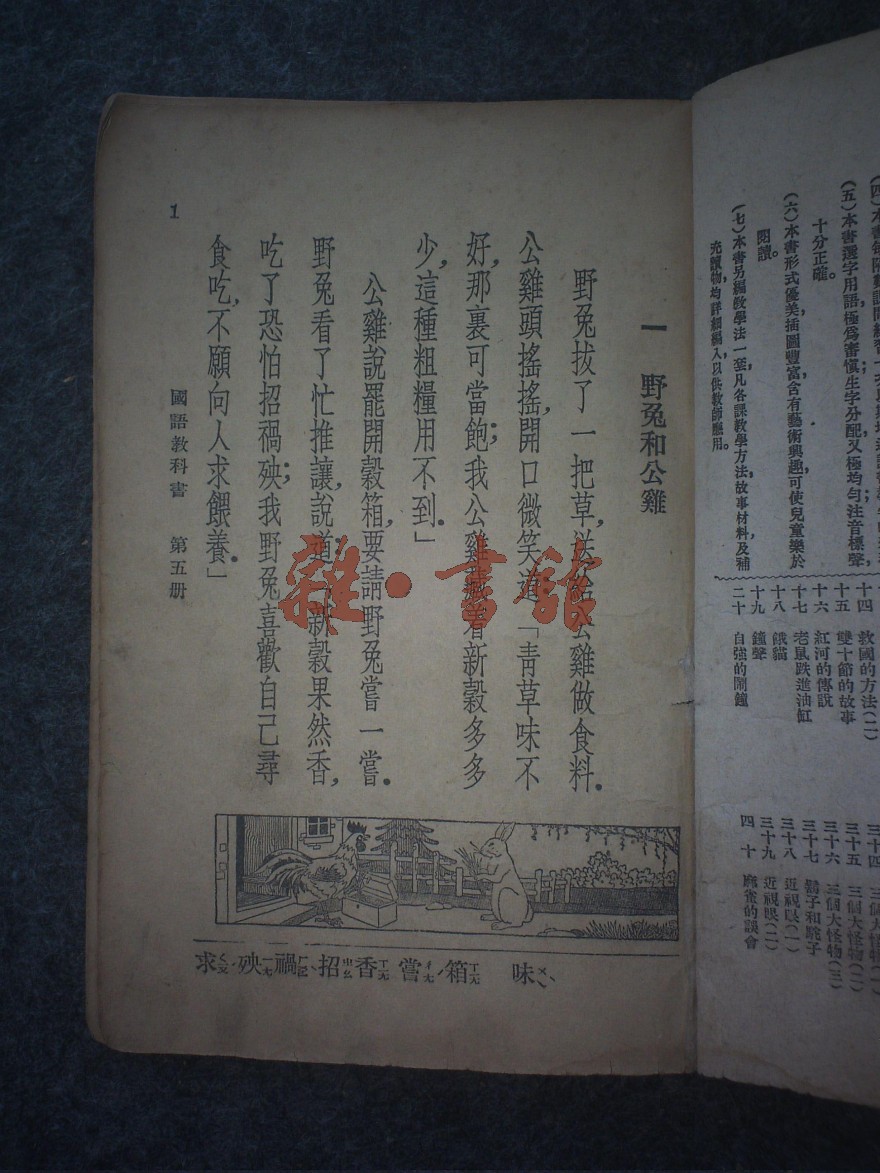 (五)本書選字用語極爲審慎生字分配又極均勻注音標聲，
十分正確。
(六)本書形式優美插圖豐富含有藝術興趣可使兒童樂於
閱讀。
(七)本書另編教學法一套凡各課教學方法故事材料及補
充讀物均詳細編入以供教師應用。
十四 救國的方法(二)
十五 雙十節的故事
十六 紅河的傳說
十七 老鼠跌進油缸
十八 餓貓
十九 鐘聲
二十 自強的鬧鐘
三十四
三十五 三個大怪物(一)
三十六 三個大怪物(二)
三十七 三個大怪物(三)
三十七 鷸子和駝子
三十八 近視眼(一)
三十九 近視眼(二)
四十 麻雀的誤會
一 野兔和公雞
野兔拔了一把草，送給公雞做食料。
公雞頭搖搖，開口微笑道：「青草味不
好，那裏可當飽；我公雞藏着新穀多多
少，這種粗糧用不到。」
公雞說罷開穀箱，要請野兔嘗一嘗。
野兔看了忙推讓，說道：「新穀果然香，
吃了恐怕招禍殃；我野兔喜歡自己尋
食吃，不願向人求餵養。」
國語教科書 第五册
1
味ㄨㄟˋ 箱ㄒㄧㄤ 嘗ㄔㄤˊ 香ㄒㄧㄤ 招ㄓㄠ 禍ㄏㄨㄛˋ 殃ㄧㄤ 求ㄑㄧㄡˊ
雜·書館